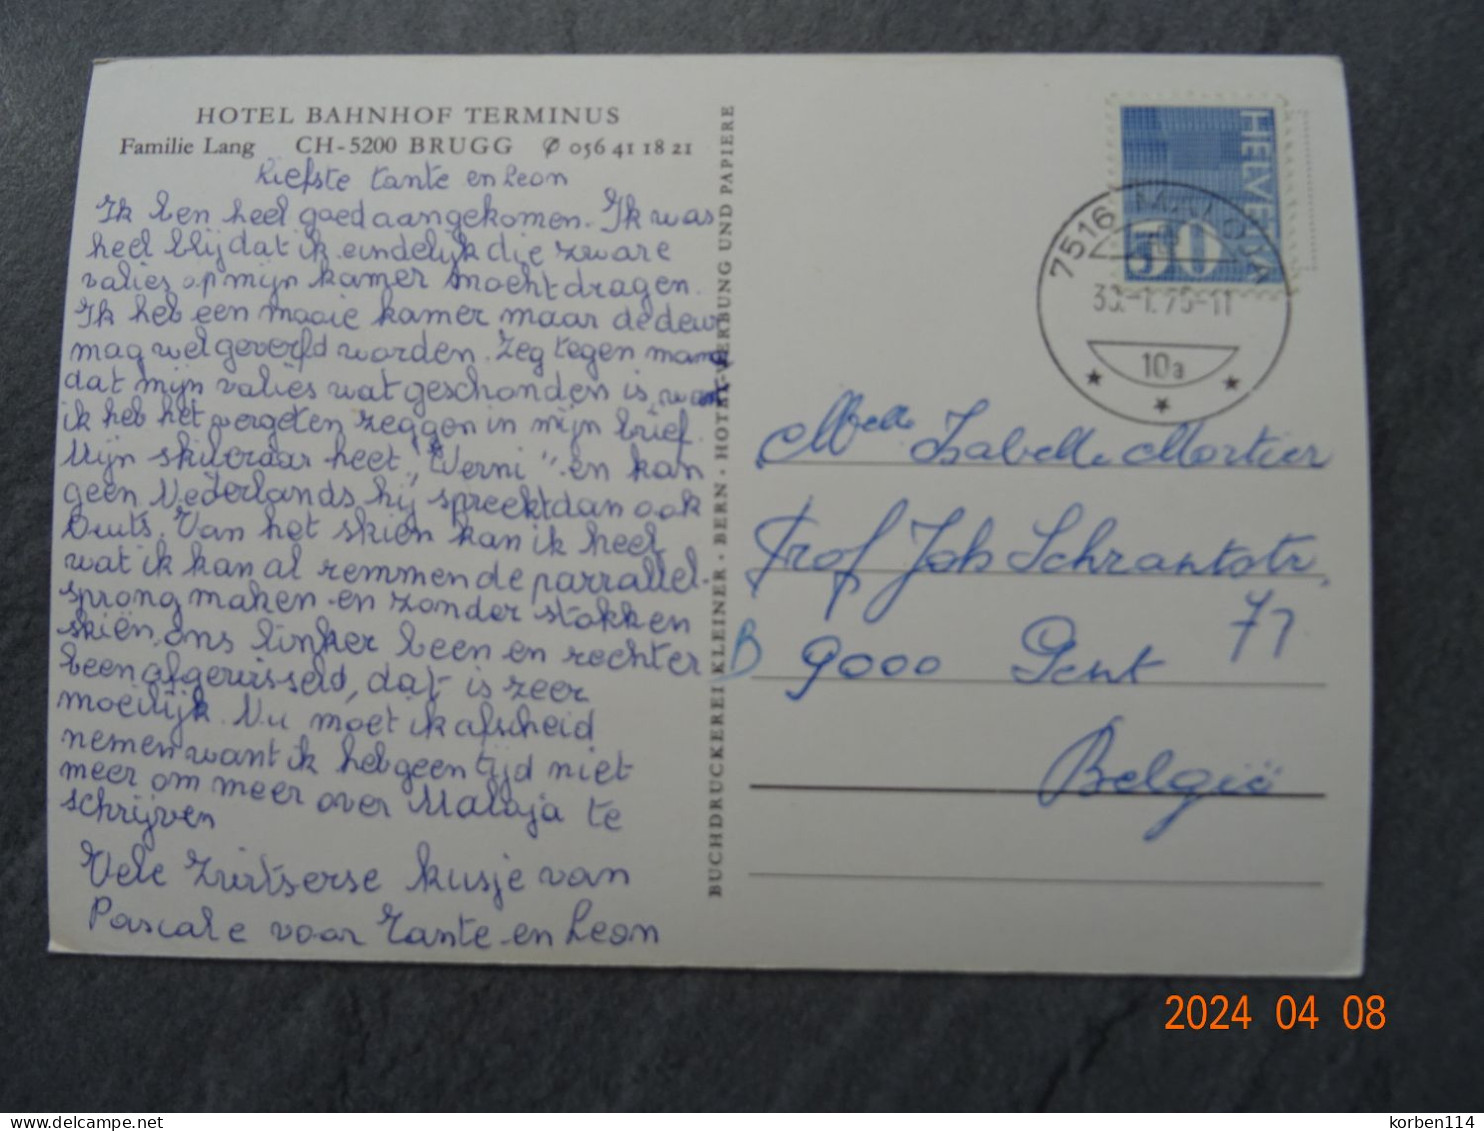 HOTEL BAHNHOF TERMINUS
Familie Lang CH-5200 BRUGG ✆ 056 41 18 21
Liefste tante en Leon
Ik ben heel goed aangekomen. Ik was
heel blij dat ik eindelijk die zware
valies op mijn kamer mocht dragen.
Ik heb een mooie kamer maar de deur
mag wel geverfd worden. Zeg tegen mama
dat mijn valies wat geschonden is, want
ik heb het vergeten zeggen in mijn brief.
Mijn skileraar heet "Werni" en kan
geen Nederlands hij spreekt dan ook
Duits. Van het skiën kan ik heel
wat ik kan al remmen de parrallel-
sprong maken en zonder stokken
skiën, ons linker been en rechter
been afgewisseld, dat is zeer
moeilijk. Nu moet ik afscheid
nemen want ik heb geen tijd niet
meer om meer over Maloja te
schrijven
Vele zwitserse kusje van
Pascale voor Tante en Leon
BUCHDRUCKEREI KLEINER · BERN · HOTEL-WERBUNG UND PAPIERE
HELVETIA
50
7516 MALOJA
30.-1.75-11
10a
Melle Isabelle Mortier
Prof Job Schrantstr.
77
B 9000 Gent
België
2024 04 08
delcampe.net
korben114